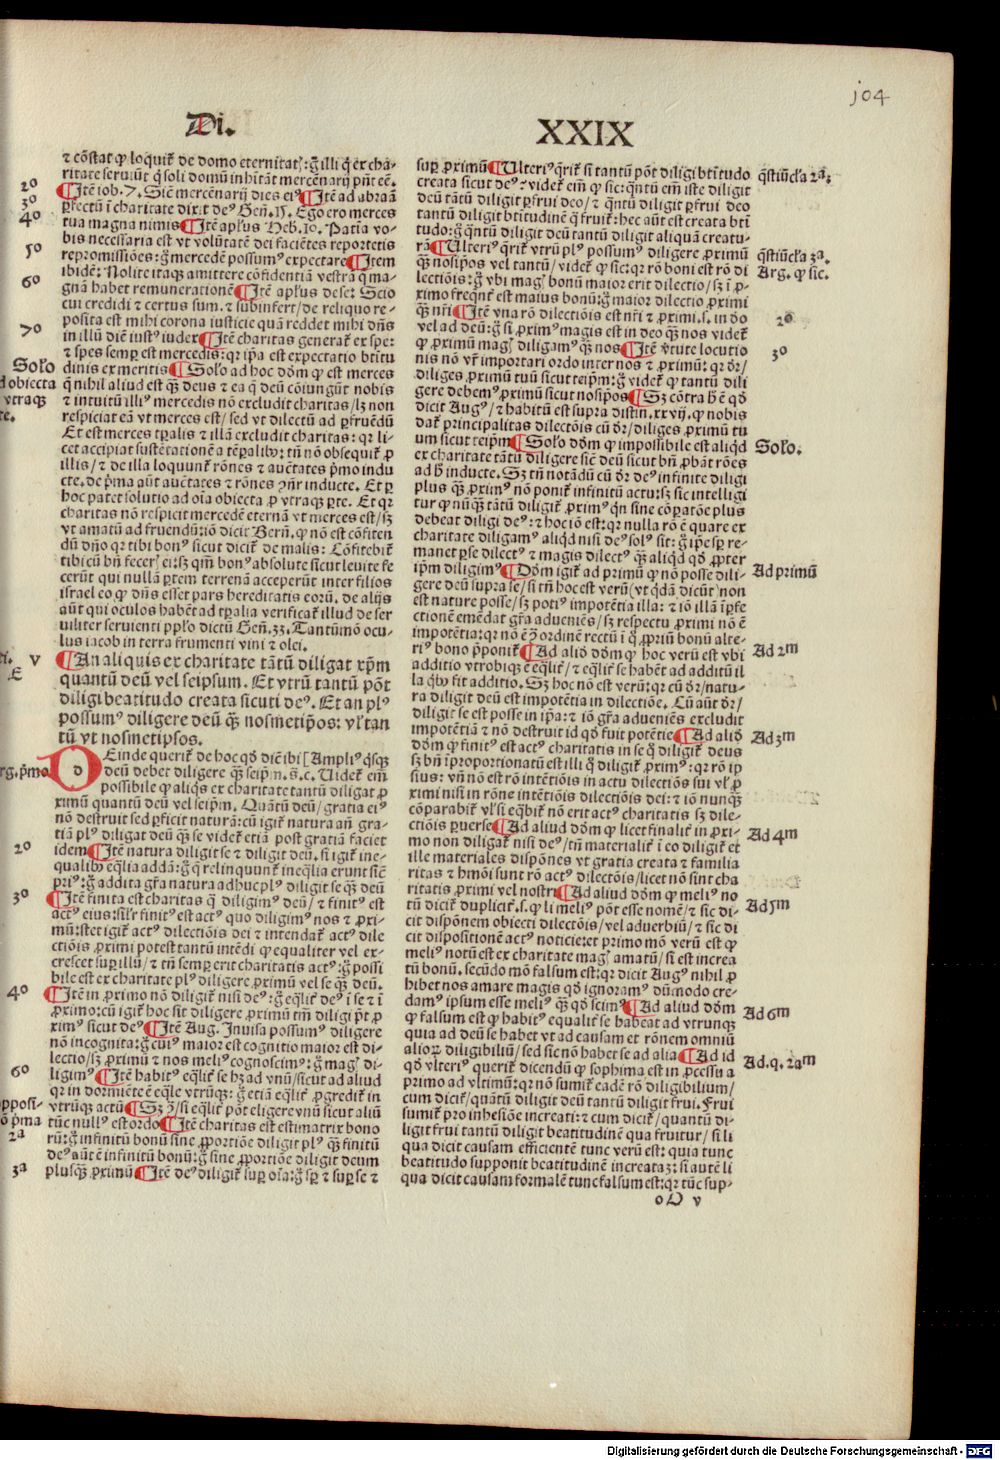 104
Di. XXIX
⁊ cōstat ꝙ loquit᷑ de domo eternitat᷑: g̊ illi q̇ ex cha-
ritate seruiūt q̇ soli domū inhītāt mercēnarij pn̄t eē.
¶Itē iob.7. Sic̄ mercēnarij dies eiꝰ ¶Itē ad abraā
ꝑfectū ī charitate dixit deꝰ Gen̄.15. Ego ero merces
tua magna nimis ¶Itē apl̄us Heb.10. Patīa vo-
bis necessaria est vt volūtatē dei faciētes reportetis
repromissiōes: g̊ mercedē possumꝰ expectare ¶Item
ibidē: Nolite itaqꝫ amittere cōfidentiā vestrā q̄ ma-
gnā habet remunerationē ¶Itē apl̄us de se: Scio
cui credidi ⁊ certus sum. ⁊ subinfert/ de reliquo re-
posita est mihi corona iusticie quā reddet mihi dn̄s
in illū diē iustꝰ iudex ¶Itē charitas generat᷑ ex spe:
⁊ spes semꝑ est mercedis: qꝛ ip̄a est expectatio btītu
dinis ex meritis ¶Solō ad hoc dōm ꝙ est merces
q̄ nihil aliud est qꝫ deus ⁊ ea q̄ deū cōiungūt nobis
⁊ intuitū illiꝰ mercedis nō excludit charitas/ lꝫ non
respiciat eā vt merces est/ sed vt dilectū ad ꝑfruēdū
Et est merces tꝑalis ⁊ illā excludit charitas: qꝛ li-
cet accipiat sustētationē a tēꝑalibꝰ: tn̄ nō obsequit᷑ ꝓ
illis/ ⁊ de illa loquunt᷑ rōnes ⁊ auc̄tates p̄mo indu
cte. de p̄ma aūt auc̄tates ⁊ rōnes ꝯn̄r inducte. Et ꝑ
hoc patet solutio ad oīa obiecta ꝓ vtraqꝫ ꝑte. Et qꝛ
charitas nō respicit mercedē eternā vt merces est/ sꝫ
vt amatū ad fruendū: iō dicit Bern̄. ꝙ nō est cōfiten
dū dn̄o qꝛ tibi bonꝰ sicut dicit᷑ de malis: Cōfitebit᷑
tibi cū bn̄ fecerꝭ ei: sꝫ qm̄ bonꝰ absolute sicut leuite fe
cerūt qui nullā ꝑtem terrenā acceperūt inter filios
israel eo ꝙ dn̄s esset pars hereditatis eorū. de alijs
aūt qui oculos habēt ad tꝑalia verificat᷑ illud de ser
uiliter seruienti ppl̄o dictū Gen̄.33. Tantūmō ocu-
lus iacob in terra frumenti vini ⁊ olei.
¶An aliquis ex charitate tātū diligat xp̄m
quantū deū vel seipsum. Et vtrū tantū pōt
diligi beatitudo creata sicuti deꝰ. Et an plꝰ
possumꝰ diligere deū qꝫ nosmetip̄os: vl̓ tan
tū vt nosmetipsos.
DEinde querit᷑ de hoc qd̄ diēibi [Ampliꝰ q̇sqꝫ
deū debet diligere qꝫ seip̄m.⁊.c. Uidet᷑ em̄
possibile ꝙ aliq̇s ex charitate tantū diligat ꝓ
ximū quantū deū vel seip̄m. Quātū deū/ gratia eiꝰ
nō destruit sed ꝑficit naturā: cū igit᷑ natura an̄ gra-
tiā plꝰ diligat deū qꝫ se videt᷑ etiā post gratiā faciet
idem ¶Itē natura diligit se ⁊ diligit deū. si igit᷑ ine-
qualibꝰ eq̄lia addā: g̊ q̄ relinquunt᷑ ineq̄lia erunt sicū
priꝰ: g̊ addita gr̄a natura adhuc plꝰ diligit se qꝫ deū
¶Itē finita est charitas q̄ diligimꝰ deū/ ⁊ finitꝰ est
actꝰ eius: sil̓r finitꝰ est actꝰ quo diligimꝰ nos ⁊ ꝓxi-
mū: stet igit᷑ actꝰ dilectiōis dei ⁊ intendat᷑ actꝰ dile
ctiōis ꝓximi potest tantū intēdi ꝙ equaliter vel ex-
crescet suꝑ illū/ ⁊ tn̄ semꝑ erit charitatis actꝰ: g̊ possi
bile est ex charitate plꝰ diligere ꝓximū vel se qꝫ deū.
¶Itē in ꝓximo nō diligit᷑ nisi deꝰ: g̊ eq̄lit᷑ deꝰ ī se ⁊ ī
ꝓximo: cū igit᷑ hoc sit diligere ꝓximū tm̄ diligi pōt ꝓ
ximꝰ sicut deꝰ ¶Itē Aug. Inuisa possumꝰ diligere
nō incognita: g̊ cuiꝰ maior est cognitio maior est di-
lectio/ sꝫ ꝓximū ⁊ nos meliꝰ cognoscimꝰ: g̊ magꝭ di-
ligimꝰ ¶Itē habitꝰ eq̄lit᷑ se hꝫ ad vnū/ sicut ad aliud
qꝛ in dormiēte ē eq̄le vtrūqꝫ: g̊ etiā eq̄lit᷑ ꝓgredit᷑ in
vtrūqꝫ actū ¶Sꝫ ꝯ̄/ si eq̄lit᷑ pōt eligere vnū sicut aliū
tūc nullꝰ est ordo ¶Itē charitas est estimatrix bono
rū: g̊ infinitū bonū sine ꝓportiōe diligit plꝰ qꝫ finitū
deꝰ autē infinitū bonū: g̊ sine ꝓportiōe diligit deum
plusqꝫ ꝓximū ¶Itē deꝰ diligit᷑ suꝑ oīa: g̊ sꝑ ⁊ suꝑ se ⁊
suꝑ ꝓximū ¶Ulteriꝰ q̄rit᷑ si tantū pōt diligi btītudo
creata sicut deꝰ: ⁊ videt᷑ em̄ ꝙ sic: q̄ntū em̄ iste diligit
deū tātū diligit ꝑfrui deo/ ⁊ q̄ntū diligit ꝑfrui deo
tantū diligit btītudinē q̄ fruit᷑: hec aūt est creata btī
tudo: g̊ q̄ntū diligit deū tantū diligit aliquā creatu-
rā ¶Ulteriꝰ q̄rit᷑ vtrū plꝰ possumꝰ diligere ꝓximū
qꝫ nosip̄os vel tantū/ videt᷑ ꝙ sic: qꝛ rō boni est rō di
lectiōis: g̊ vbi magꝭ bonū maior erit dilectio/ sꝫ ī ꝓ-
ximo freq̄nt᷑ est maius bonū: g̊ maior dilectio ꝓximi
qꝫ nr̄i ¶Itē vna rō dilectiōis est nr̄i ⁊ ꝓximi.s. in ꝺ̄o
vel ad deū: g̊ si ꝓximꝰ magis est in deo qꝫ nos videt᷑
ꝙ ꝓximū magꝭ diligamꝰ qꝫ nos ¶Itē v̓tute locutio
nis nō vr̄ importari ordo inter nos ⁊ ꝓximū: qꝛ ꝺ̄r/
diliges ꝓximū tuū sicut teip̄m: g̊ videt᷑ ꝙ tantū dili
gere debemꝰ ꝓximū sicut nosip̄os ¶Sꝫ cōtra h̄ ē qd̄
dicit Augꝰ/ ⁊ habitū est supra distin̄.xxvij. ꝙ nobis
dat᷑ principalitas dilectōis cū ꝺ̄r/ diliges ꝓximū tu
um sicut teip̄m ¶Solō dōm ꝙ impossibile est aliqd̄
ex charitate tātū diligere sic̄ deū sicut bn̄ ꝓbāt rōes
ad h̄ inducte. Sꝫ tn̄ notādū cū ꝺ̄r deꝰ infinite diligi
plus qꝫ ꝓximꝰ nō ponit᷑ infinitū actu: sꝫ sic intelligi
tur ꝙ nūqꝫ tātū diligit᷑ ꝓximꝰ q̇n sine cōꝑatōe plus
debeat diligi deꝰ: ⁊ hoc iō est: qꝛ nulla rō ē quare ex
charitate diligamꝰ aliqd̄ nisi deꝰ solꝰ sit: g̊ ip̄e sꝑ re-
manet ꝑ se dilectꝰ ⁊ magis dilectꝰ qꝫ aliq̇d qd̄ ꝓpter
ip̄m diligimꝰ ¶Dōm igit᷑ ad primū ꝙ nō posse dili-
gere deū supra se/ si tn̄ hoc est verū (vt q̇dā dicūt) non
est nature posse/ sꝫ potiꝰ impotētia illa: ⁊ iō illā īꝑfe
ctionē emēdat gr̄a adueniēs/ sꝫ respectu ꝓximi nō ē
impotētia: qꝛ nō ē ꝯ̄ ordinē rectū ī q̄ ꝓriū bonū alte-
riꝰ bono p̄ponit᷑ ¶Ad aliō dōm ꝙ hoc verū est vbi
additio vtrobiqꝫ ē eq̄lit᷑/ ⁊ eq̄lit᷑ se habēt ad additū il
la qbꝰ fit additio. Sꝫ hoc nō est verū: qꝛ cū ꝺ̄r/ natu-
ra diligit deū est impotētia in dilectiōe. Cū aūt ꝺ̄r/
diligit se est posse in ip̄a: ⁊ iō gr̄a adueniēs excludit
impotētiā ⁊ nō destruit id qd̄ fuit potētie ¶Ad aliō
dōm ꝙ finitꝰ est actꝰ charitatis in se q̄ diligit᷑ deus
sꝫ bn̄ īproportionatū est illi q̄ diligit᷑ ꝓximꝰ: qꝛ rō ip
sius: vn̄ nō est rō intētiōis in actu dilectiōis sui vl̓ ꝓ
ximi nisi in rōne intētiōis dilectiōis dei: ⁊ iō nunqꝫ
cōparabit᷑ vl̓ si eq̄bit᷑ nō erit actꝰ charitatis sꝫ dile-
ctiōis ꝑuerse ¶Ad aliud dōm ꝙ licet finalit᷑ in ꝓxi-
mo non diligat᷑ nisi deꝰ/ tn̄ materialit᷑ ī eo diligit᷑ et
ille materiales dispōnes vt gratia creata ⁊ familia
ritas ⁊ hmōi sunt rō actꝰ dilectōis/ licet nō sint cha
ritatis ꝓximi vel nostri ¶Ad aliud dōm ꝙ meliꝰ no
tū dicit᷑ duplicit᷑.s. ꝙ li meliꝰ pōt esse nomē/ ⁊ sic di-
cit dispōnem obiecti dilectōis/ vel aduerbiū/ ⁊ sic di
cit dispositionē actꝰ noticie: et primo mō verū est ꝙ
meliꝰ notū est ex charitate magꝭ amatū/ si est increa
tū bonū. secūdo mō falsum est: qꝛ dicit Augꝰ nihil ꝓ
hibet nos amare magis qd̄ ignoramꝰ dūmodo cre-
damꝰ ipsum esse meliꝰ qꝫ qd̄ scimꝰ ¶Ad aliud dōm
ꝙ falsum est ꝙ habitꝰ equalit᷑ se habeat ad vtrunqꝫ
quia ad deū se habet vt ad causam et rōnem omniū
alioꝝ diligibiliū/ sed sic nō habet se ad alia ¶Ad id
qd̄ vlteriꝰ querit᷑ dicendū ꝙ sophima est in ꝓcessu a
primo ad vltimū: qꝛ nō sumit᷑ eadē rō diligibilium/
cum dicit᷑/ quātū diligit deū tantū diligit frui. Frui
sumit᷑ pro inhesiōe increati: ⁊ cum dicit᷑/ quantū di-
ligit frui tantū diligit beatitudinē qua fruitur/ si li
qua dicit causam efficientē tunc verū est: quia tunc
beatitudo supponit beatitudinē increatā: si autē li
qua dicit causam formalē tunc falsum est: qꝛ tūc sup-
oO v
2º
3º
4º
5º
6º
7º
Solō
d obiecta
vtraqꝫ
te.
V
E
rg. p̄mo
2º
3º
4º
6º
pposi-
ō p̄ma
2ª
3ª
q̄stiūcl̓a 2ª.
q̄stiūcl̓a 3ª.
Arg. ꝙ sic.
2º
3º
Solō.
Ad primū
Ad 2m
Ad 3m
Ad 4m
Ad 5m
Ad 6m
Ad.q.2am
Digitalisierung gefördert durch die Deutsche Forschungsgemeinschaft - DFG